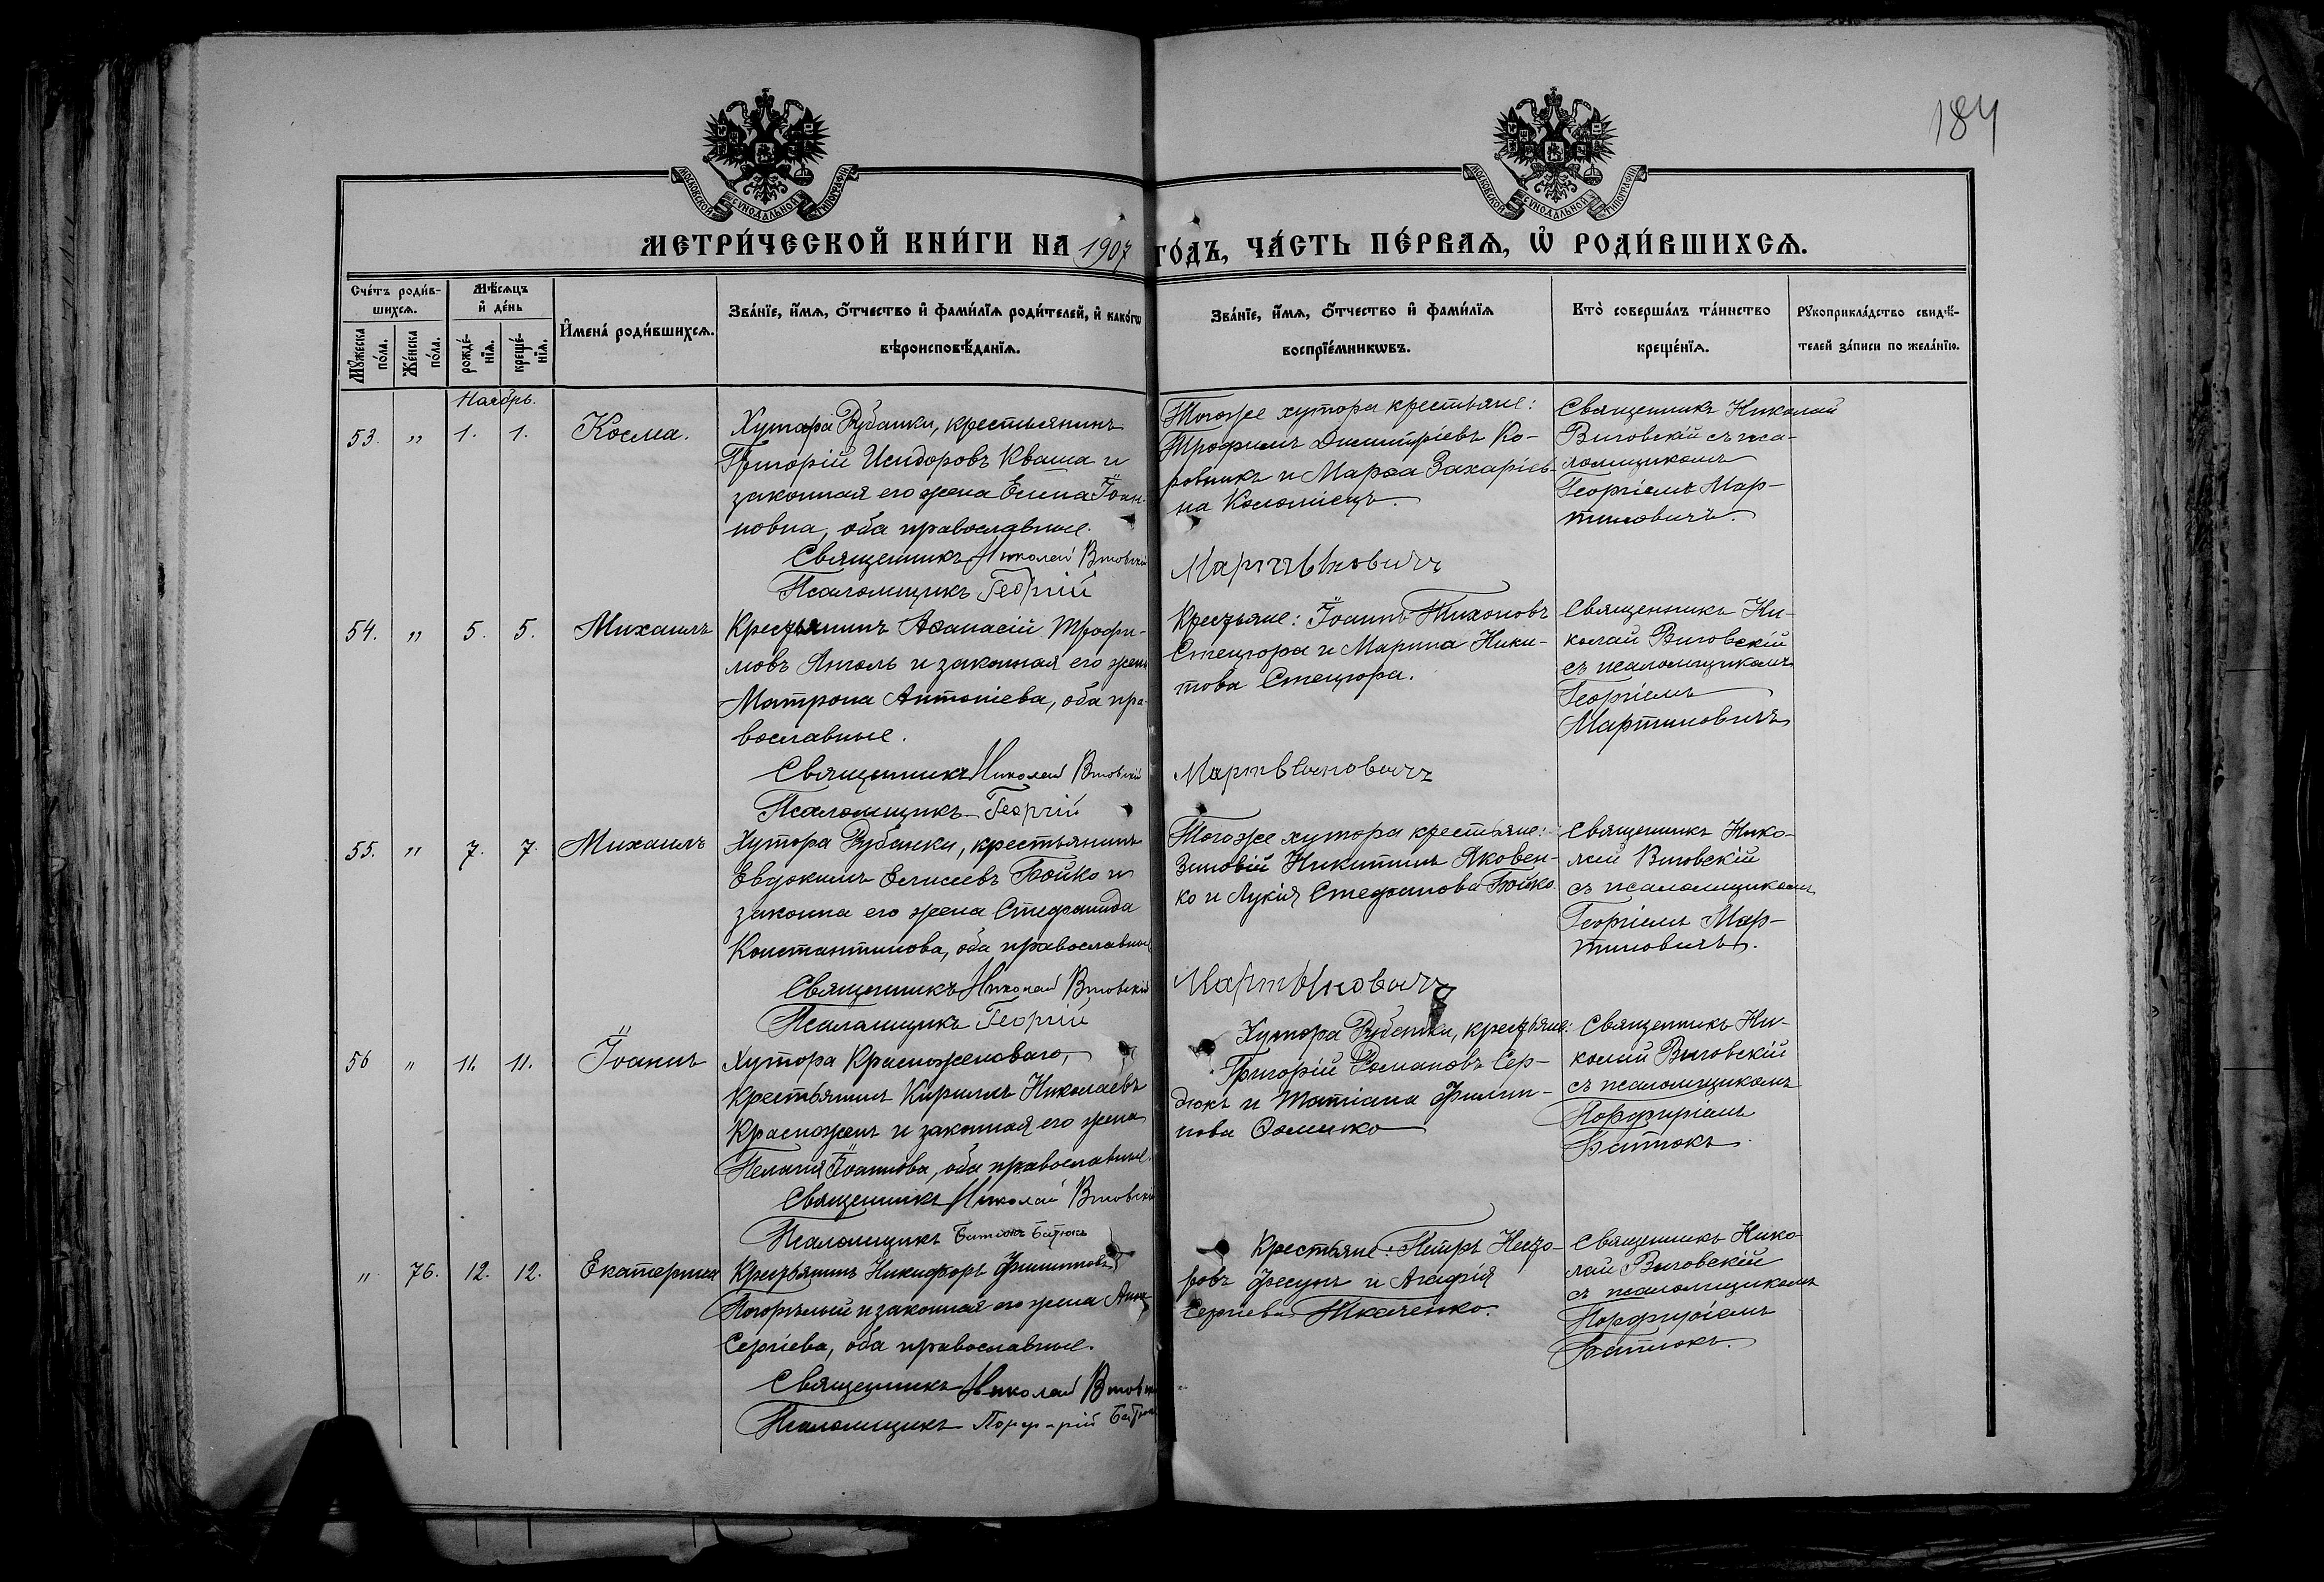 184
МОСКОВСКОЙ СУНОДАЛЬНОЙ ТИПОГРАФІИ
МОСКОВСКОЙ СУНОДАЛЬНОЙ ТИПОГРАФІИ
МЕТРИ́ЧЕСКОЙ КНИ́ГИ НА 1907 ГО́ДЪ, ЧА́СТЬ ПЕ́РВАѦ, Ѡ҆ РОДИ́ВШИХСѦ.
Сче́тъ роди́в-
шихсѧ.
Мꙋ́жеска по́ла.
Же́нска по́ла.
Мѣ́сѧцъ
и҆ де́нь
рожде́-
нїѧ.
креще́-
нїѧ.
И҆мена̀ роди́вшихсѧ.
Зва́нїе, и҆́мѧ, ѻ҆́тчество и҆ фами́лїѧ роди́телей, и҆ како́гѡ
вѣроисповѣ́данїѧ.
Зва́нїе, и҆́мѧ, ѻ҆́тчество и҆ фами́лїѧ
воспрїе́мникѡвъ.
Кто̀ соверша́лъ та́инство
креще́нїѧ.
Рꙋкоприкла́дство свидѣ́-
телей за́писи по жела́нїю.
Ноябрь.
53. " 1. 1. Косма.
Хутора Рубанки, крестьянинъ
Григорій Исидоровъ Кваша и
законная его жена Елена Іоан-
новна, оба православные.
Священникъ Николай
Псаломщикъ Георгій Мартыновичъ
Тогоже хутора крестьяне:
Трофимъ Димитріевъ Ко-
ровникъ и Марѳа Захаріев-
на Коломіецъ.
Священникъ Николай
съ пса-
ломщикомъ
Георгіемъ Мар-
тиновичъ.
54. " 5. 5. Михаилъ
Крестьянинъ Аѳанасій Трофи-
мовъ и законная его жена
Матрона Антоніева, оба пра-
вославные.
Священникъ Николай
Псаломщикъ Георгій Мартыновичъ
Крестьяне: Іоаннъ Тихоновъ
Стецюра и Марина Ники-
това Стецюра.
Священникъ Ни-
колай
съ псаломщикомъ
Георгіемъ
Мартиновичъ
55. " 7. 7. Михаилъ
Хутора Рубанки, крестьянинъ
Евдокимъ Елисеевъ Бойко и
законна его жена Стефанида
Константинова, оба православные
Священникъ Николай
Псаломщикъ Георгій Мартыновичъ
Тогоже хутора крестьяне:
Зиновій Никитинъ Яковен-
ко и Лукія Стефанова Бойко.
Священникъ Нико-
лай
съ псаломщикомъ
Георгіемъ Мар-
тиновичъ.
56 " 11. 11. Іоаннъ
Хутора Красноженоваго,
крестьянинъ Кириллъ Николаевъ
Красножонъ и законная его жена
Пелагія Іоаннова, оба православные.
Священникъ Николай
Псаломщикъ Батюкъ Батюкъ
Хутора Рубанки, крестьяне:
Григорій Романовъ Сер-
дюкъ и Татіана Филип-
пова Ѳоменко
Священникъ Ни-
колай
съ псаломщикомъ
Порфиріемъ
Батюкъ.
" 76. 12. 12. Екатерина
Крестьянинъ Никифоръ Филипповъ
Погорѣлый и законная его жена Анна
Сергіева, оба православные.
Священникъ Николай
Псаломщикъ Порфирій Батюкъ
Крестьяне: Петръ
Фесунъ и Агафія
Сергіева Ткаченко.
Священникъ Нико-
лай
съ псаломщикомъ
Порфиріемъ
Батюкъ.